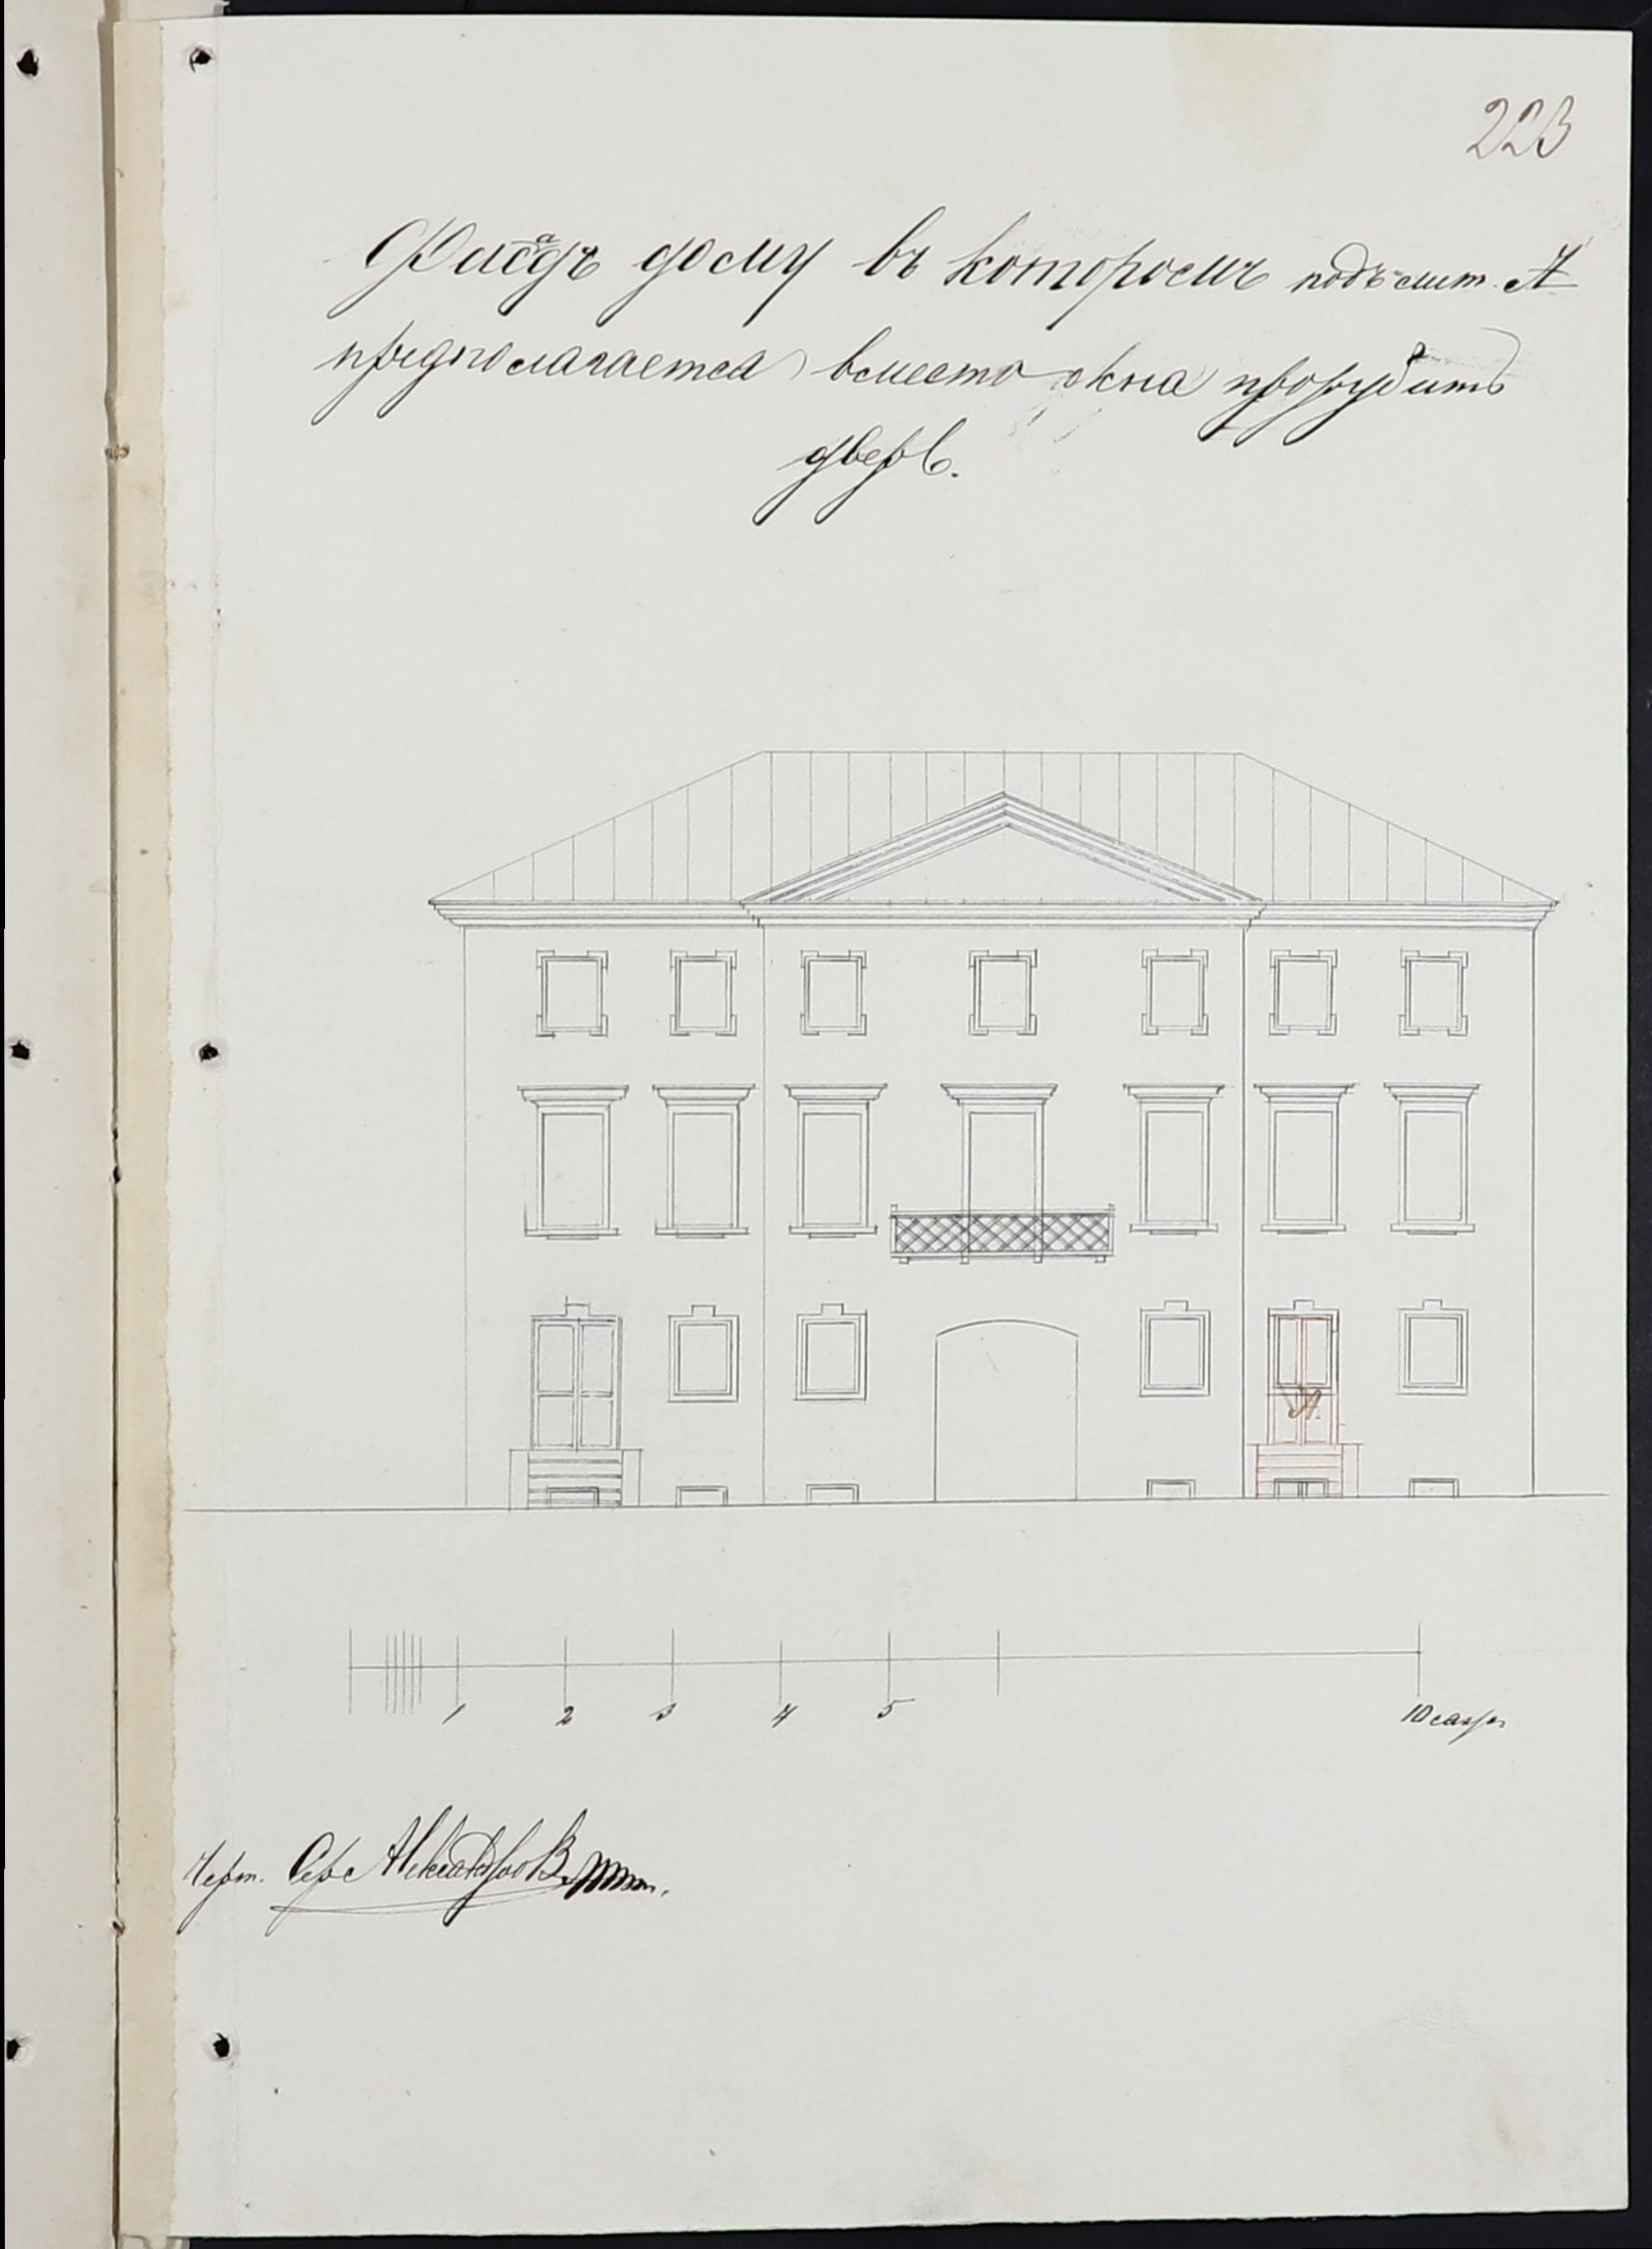 223
Фасадъ дому въ которомъ подъ лит. А
предполагается вместо окна прорубить
дверь.
А.
1 2 3 4 5 10 саж
Черт. Серг Александровъ